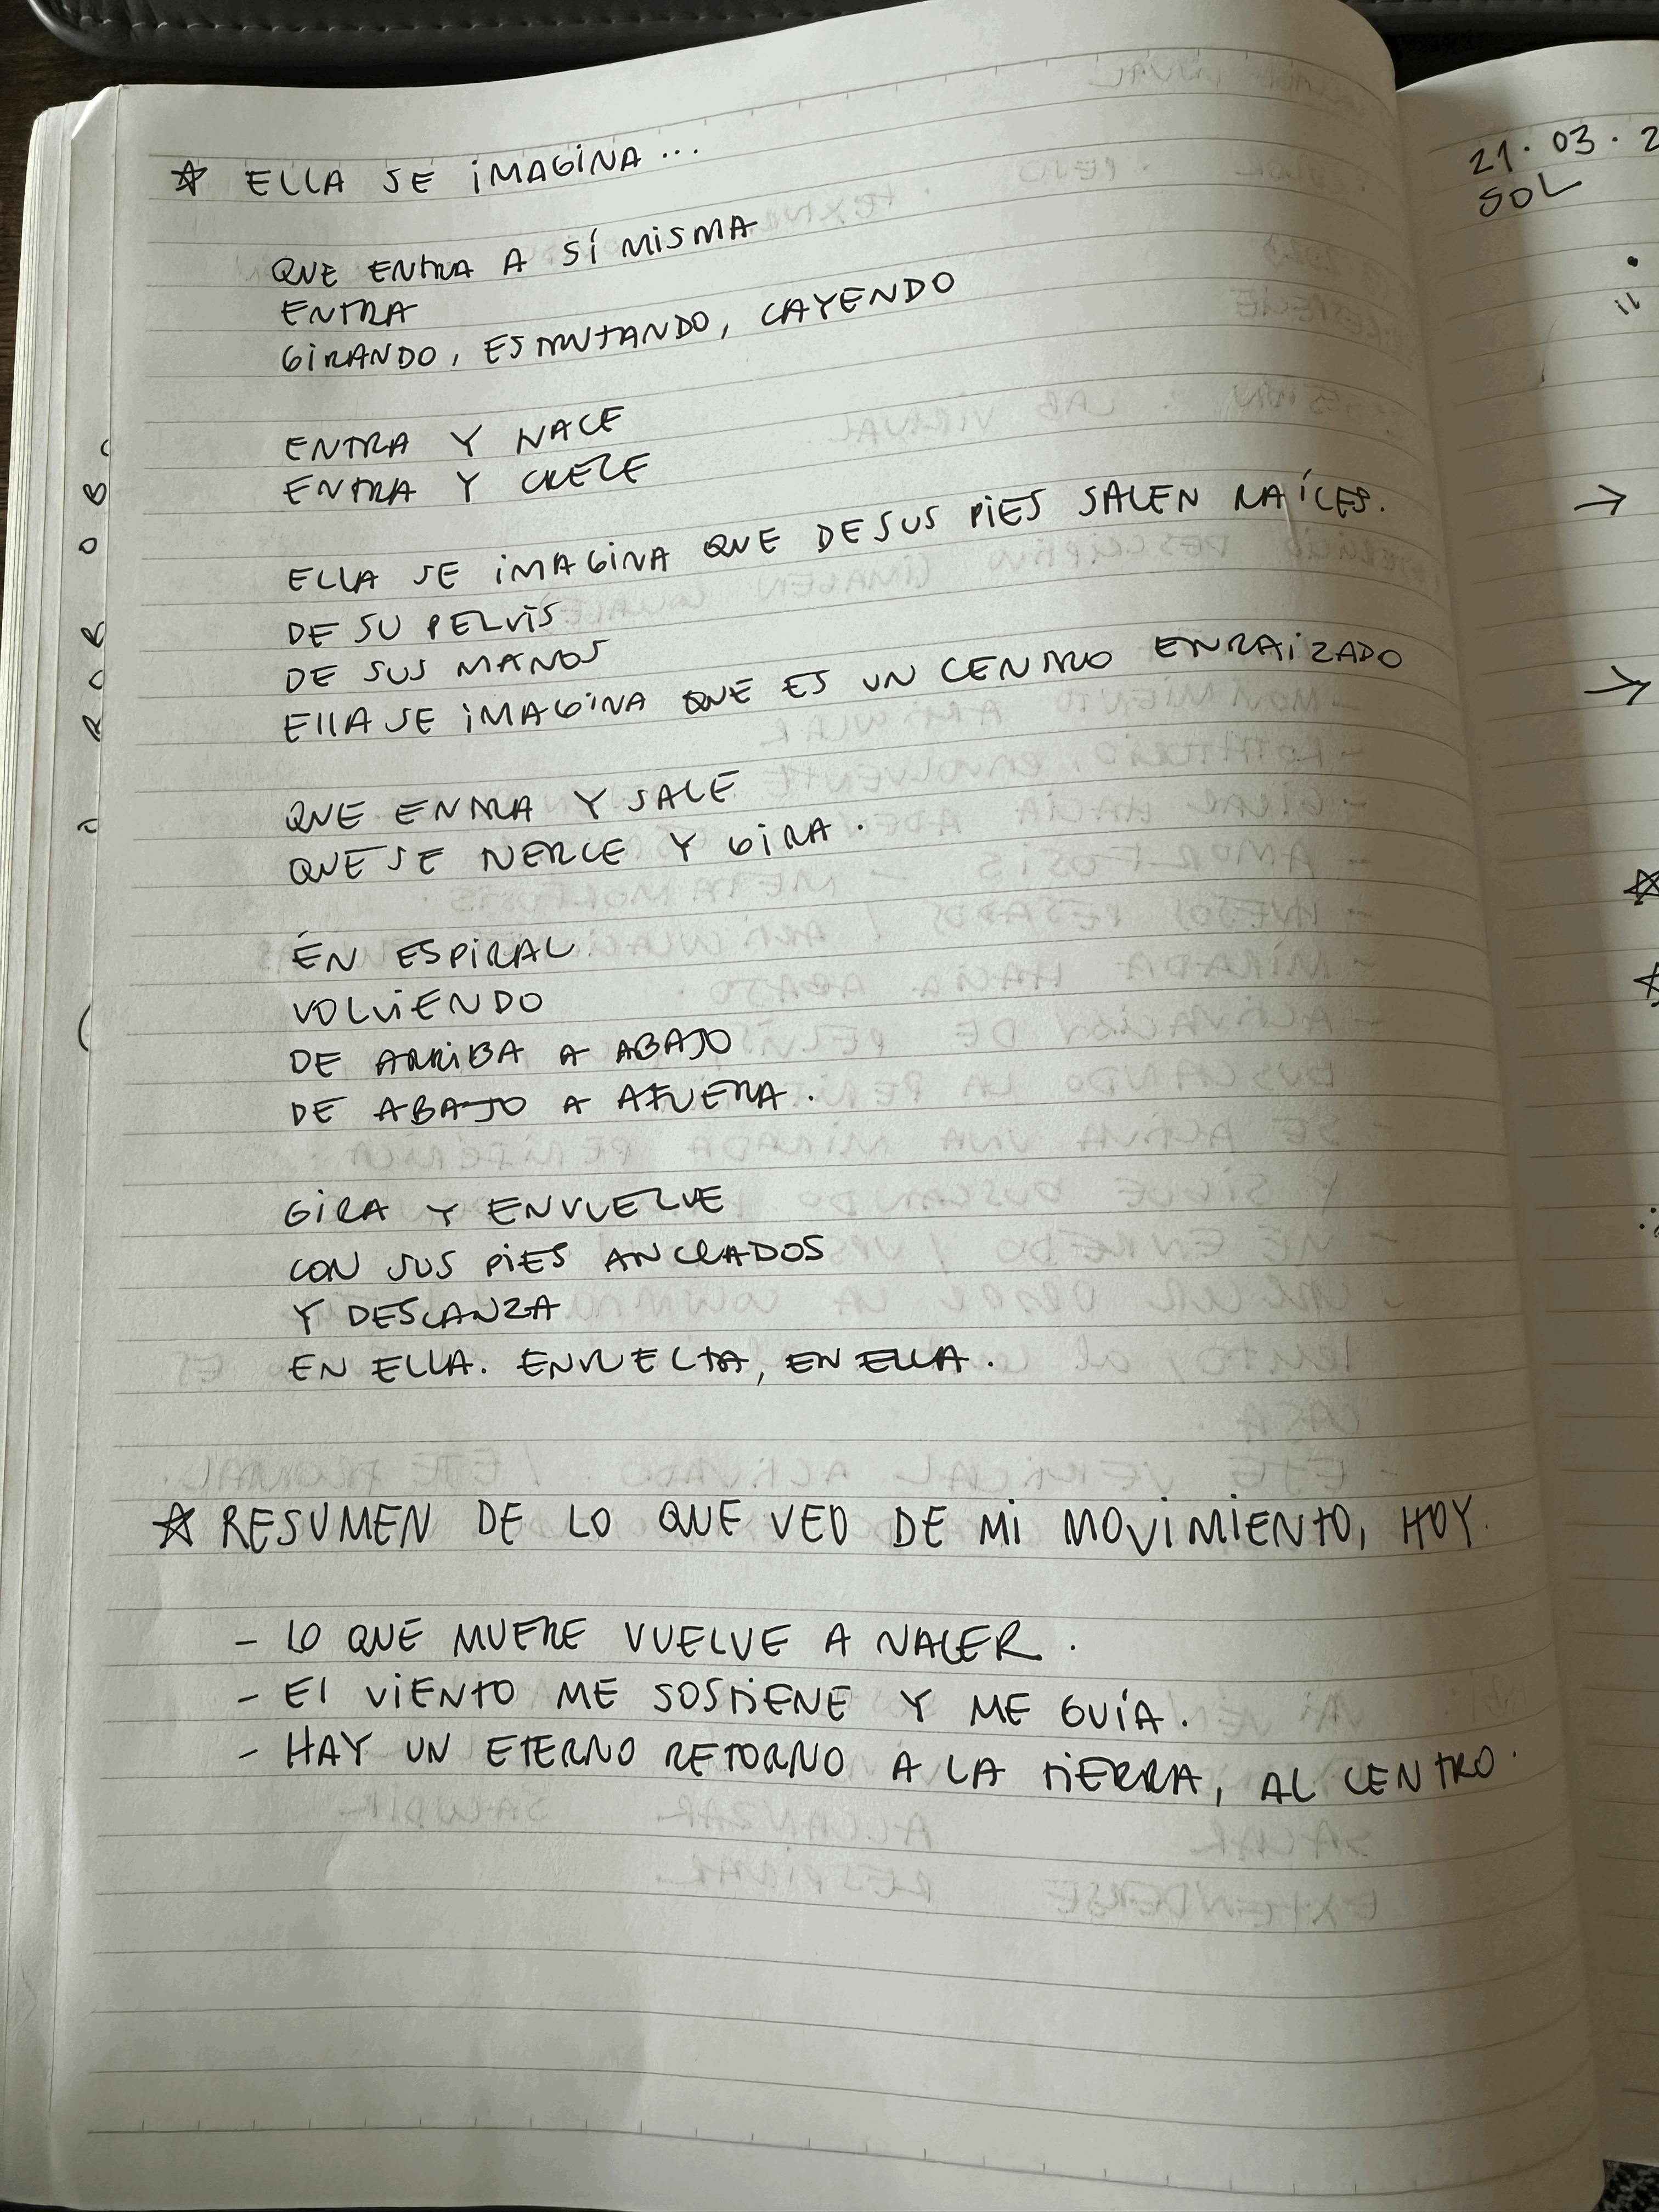 ☆ ELLA SE IMAGINA...
QUE ENTRA A SÍ MISMA
ENTRA
GIRANDO, CAYENDO
ENTRA Y NACE
ENTRA Y CRECE
ELLA SE IMAGINA QUE DE SUS PIES SALEN RAÍCES.
DE SU PELVIS
DE SUS MANOS
ELLA SE IMAGINA QUE ES UN CENTRO ENRAIZADO
QUE ENTRA Y SALE
QUE SE Y GIRA.
EN ESPIRAL
VOLVIENDO
DE ARRIBA A ABAJO
DE ABAJO A AFUERA.
GIRA Y ENVUELVE
CON SUS PIES ANCLADOS
Y DESCANZA
EN ELLA. ENVUELTA, EN ELLA.
☆ RESUMEN DE LO QUE VEO DE MI MOVIMIENTO, HOY.
- LO QUE MUERE VUELVE A NACER.
- El VIENTO ME SOSTIENE Y ME GUÍA.
- HAY UN ETERNO RETORNO A LA TIERRA, AL CENTRO.
21.03.2
SOL